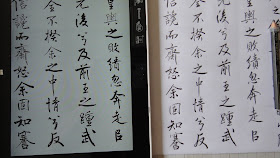 皇輿之敗績忽奔走㠯
先後兮及前王之踵武
荃不揆余之中情兮反
信讒而齋怒余固知謇
皇輿之敗績忽奔走㠯
先後兮及前王之踵武
荃不揆余之中情兮反
信讒而齋怒余固知謇